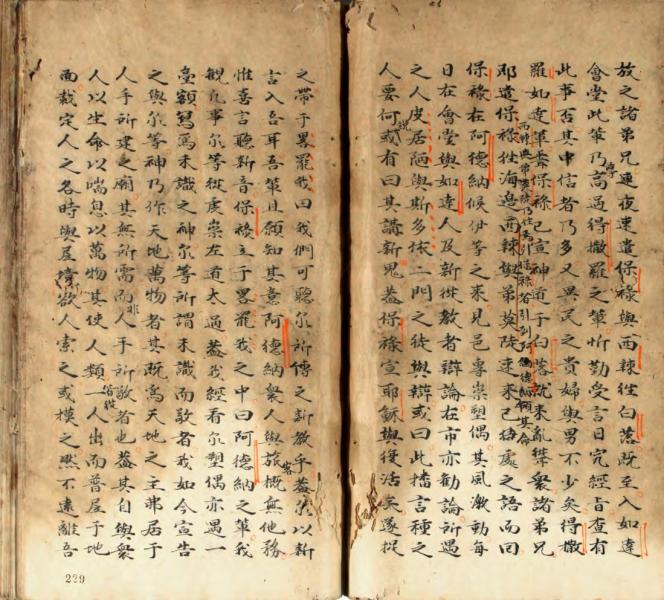 故之諸弟兄連夜速遣保祿與西辣徃白落既至入如達
會堂此軰乃高過得撒羅之軰忻勤受言日究經旨查有
此事否其中信者乃多又異武之貴婦與男不少矣得撒
羅如達軰聞保祿已宣神道于白落就來亂聳聚諸弟兄
即遣保祿徃海邉西辣與弟莫陡速來己處之語而回
而辣與弟莫陡乃住矣引保祿者引到阿德納領其命
保祿在阿德納候伊等之來見邑專崇塑偶其風激動每
日在會堂與如達人及新從教者辯論在市亦勸論所遇
之人皮居陋與斯多依二門之徒與辯或曰此播言種之
人要何說或有曰其講新鬼葢保祿宣耶穌與復活矣遂捉
之帶于畧罷我曰我們可聽尔所傳之新教乎葢尔以新
言入吾耳吾等且願知其意阿德納衆人與旅客槪無他務
惟喜言聽新音保祿立于畧罷我之中曰阿德納之軰我
觀凡事尔等從虔崇左道太過葢我經看尔塑偶亦遇一
臺額寫為未識之神尔等所謂未識而敬者我如今宣告
之與尔等神乃作天地萬物者其既為天地之主弗居于
人手所建之廟其無所需而非人手所敬者也葢其自與衆
人以生命以喘息以萬物其使人類皆從一人出而普居于地
面裁定人之各時與屋境欲人索之或模之然不遠離吾
229